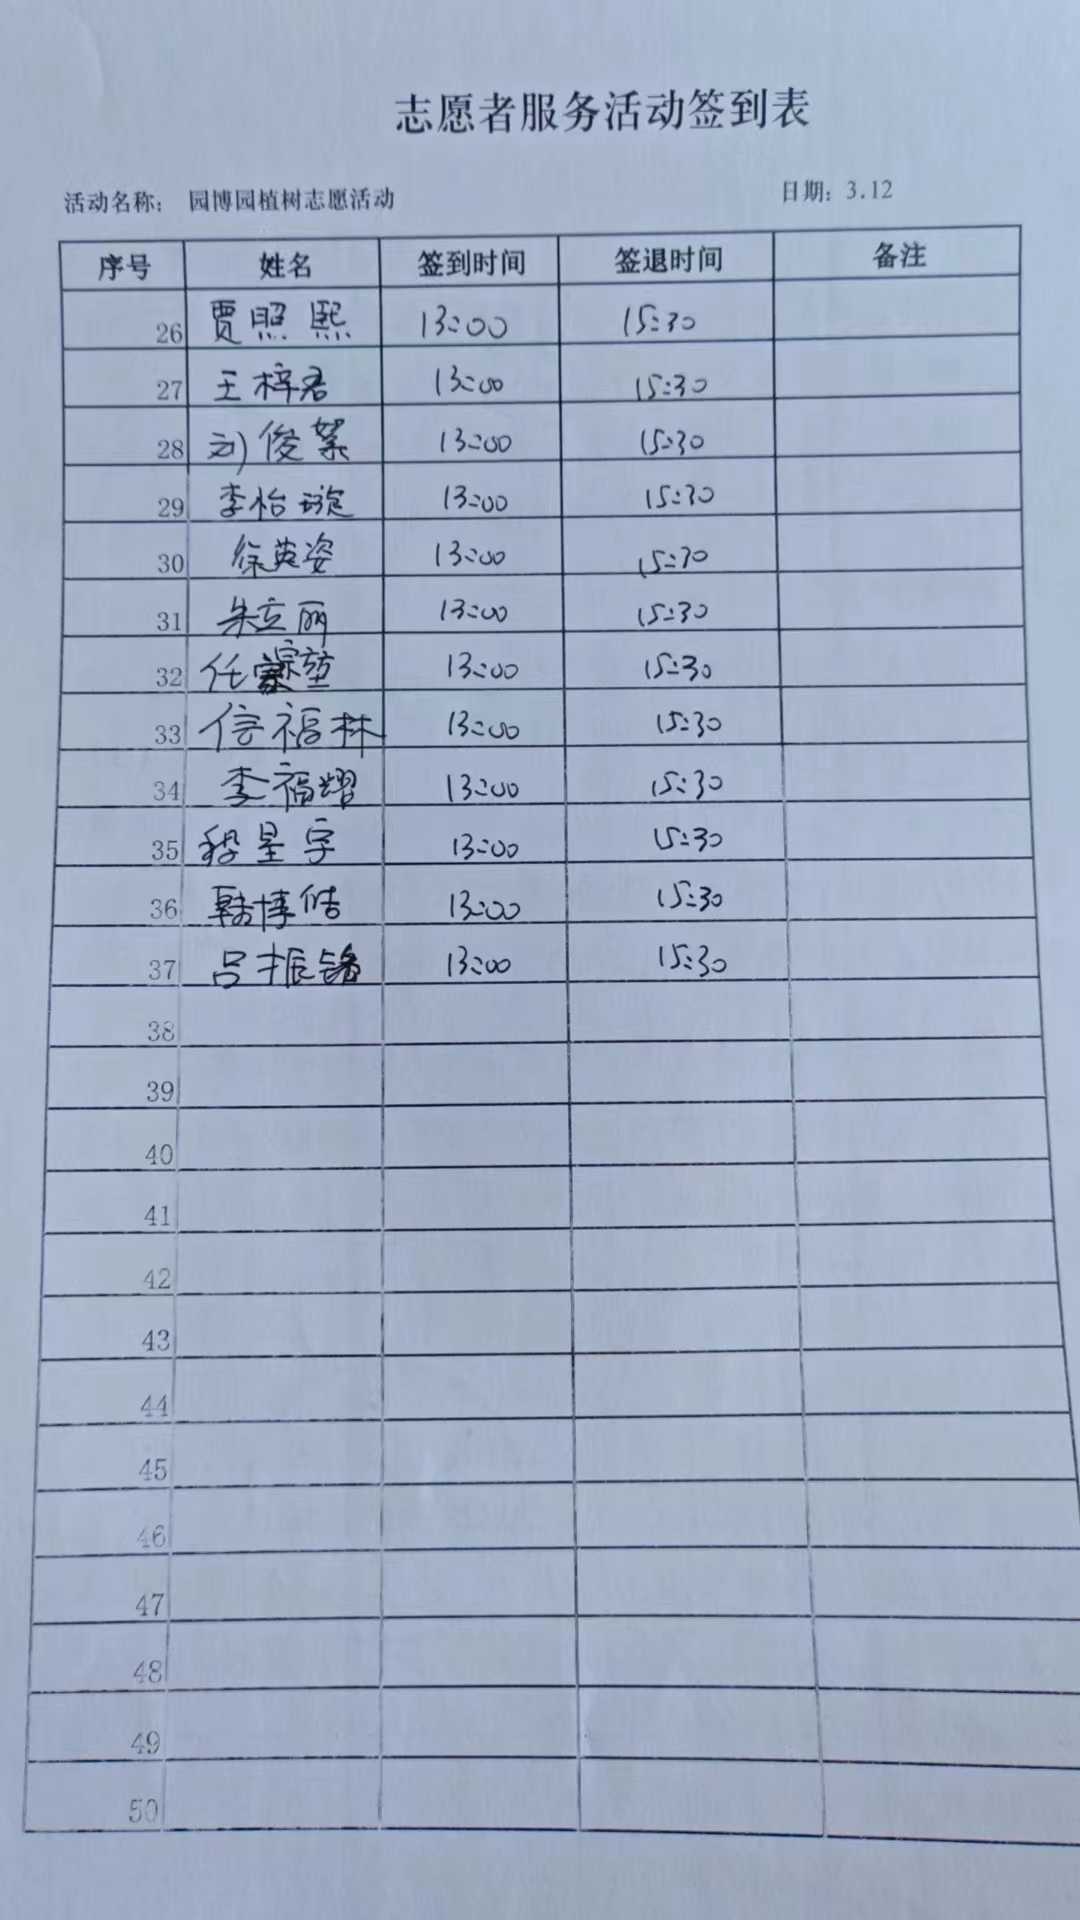 志愿者服务活动签到表
活动名称： 园博园植树志愿活动 日期：3.12
序号 姓名 签到时间 签退时间 备注
26 贾照熙 13:00 15:30
27 王梓君 13:00 15:30
28 刘俊絮 13:00 15:30
29 李怡璇 13:00 15:30
30 徐英姿 13:00 15:30
31 朱立丽 13:00 15:30
32 任 13:00 15:30
33 信福林 13:00 15:30
34 李福耀 13:00 15:30
35 程星宇 13:00 15:30
36 韩博皓 13:00 15:30
37 吕振铭 13:00 15:30
38
39
40
41
42
43
44
45
46
47
48
49
50